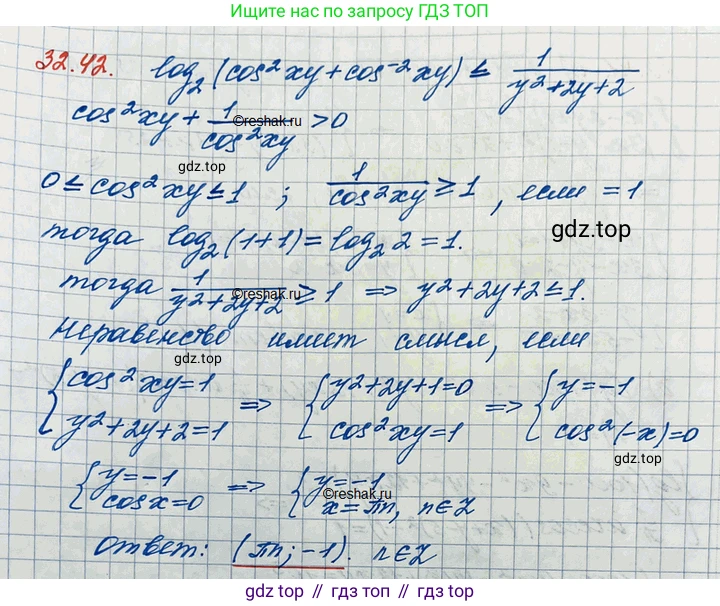 Ищите ответы по запросу ГДЗ ТОП
32.42. log₂(cos²xy + cos⁻²xy) ≤ 1/(y²+2y+2)
cos²xy + 1/cos²xy > 0
©reshak.ru
gdz.top
0 ≤ cos²xy ≤ 1 ; 1/cos²xy ≥ 1, если = 1
gdz.top
тогда log₂(1+1) = log₂2 = 1.
тогда 1/(y²+2y+2) ≥ 1 => y²+2y+2 ≤ 1.
©reshak.ru
Неравенство имеет смысл, если
gdz.top
{cos²xy=1 => {y²+2y+1=0 => {y=-1
{y²+2y+2=1 {cos²xy=1 {cos²(-x)=0
gdz.top
{y=-1 => {y=-1
{cosx=0 {x=πn, n∈Z
©reshak.ru
Ответ: (πn; -1). n∈Z
gdz.top // гдз.топ // gdz.top // гдз.топ // gdz.top